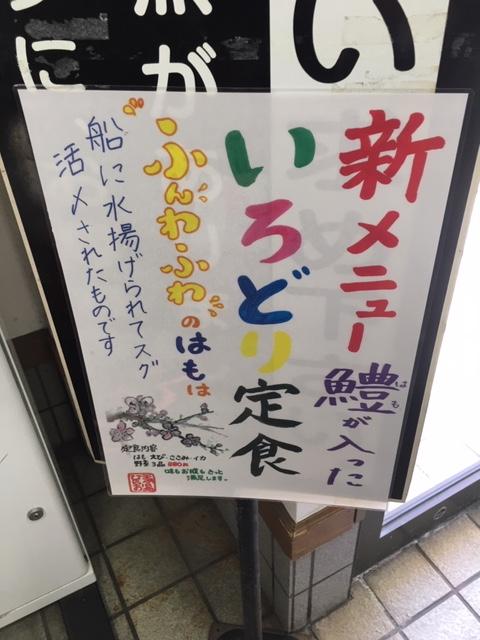 新メニュー
鱧が入った
はも
いろどり定食
ふんわふわのはもは
船に水揚げられてスグ
活〆されたものです
定食内容
はも・えび・ささみ・イカ
野菜3品
味もお腹もきっと
満足します。
い
が
に